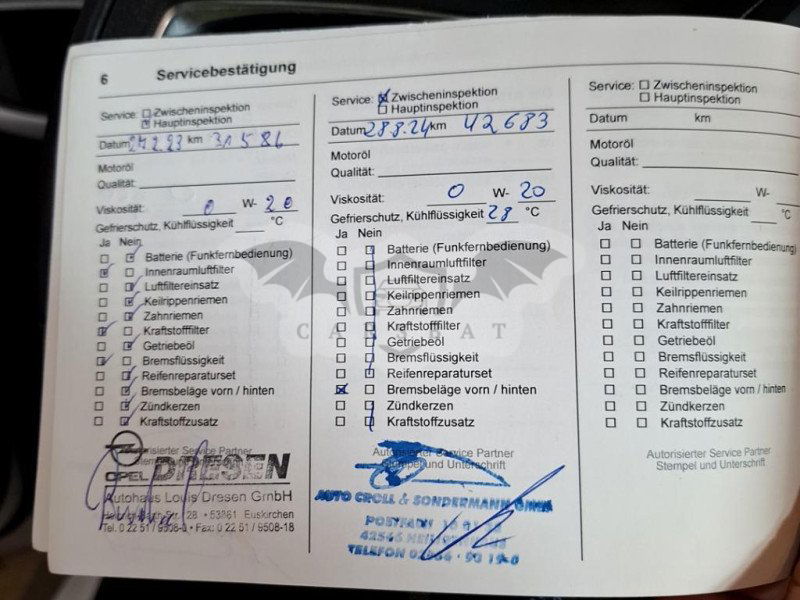 6 Servicebestätigung
Service: Zwischeninspektion
Hauptinspektion
Datum km 31586
Motoröl
Qualität:
Viskosität: 0 W- 20
Gefrierschutz, Kühlflüssigkeit °C
Ja Nein
Batterie (Funkfernbedienung)
Innenraumluftfilter
Luftfiltereinsatz
Keilrippenriemen
Zahnriemen
Kraftstofffilter
Getriebeöl
Bremsflüssigkeit
Reifenreparaturset
Bremsbeläge vorn / hinten
Zündkerzen
Kraftstoffzusatz
Autorisierter Service Partner
OPEL DRESEN
Autohaus Louis Dresen GmbH
28 • 53881 Euskirchen
Tel. 0 22 51 / 9508-0 • Fax: 0 22 51 / 9508-18
Service: Zwischeninspektion
Hauptinspektion
Datum 28 8. 24 km 42683
Motoröl
Qualität:
Viskosität: 0 W- 20
Gefrierschutz, Kühlflüssigkeit 28 °C
Ja Nein
Batterie (Funkfernbedienung)
Innenraumluftfilter
Luftfiltereinsatz
Keilrippenriemen
Zahnriemen
Kraftstofffilter
Getriebeöl
Bremsflüssigkeit
Reifenreparaturset
Bremsbeläge vorn / hinten
Zündkerzen
Kraftstoffzusatz
Autorisierter Service Partner
Stempel und Unterschrift
AUTO CROLL & SONDERMANN GMBH
POSTFACH
TELEFON
Service: Zwischeninspektion
Hauptinspektion
Datum km
Motoröl
Qualität:
Viskosität: W-
Gefrierschutz, Kühlflüssigkeit °C
Ja Nein
Batterie (Funkfernbedienung)
Innenraumluftfilter
Luftfiltereinsatz
Keilrippenriemen
Zahnriemen
Kraftstofffilter
Getriebeöl
Bremsflüssigkeit
Reifenreparaturset
Bremsbeläge vorn / hinten
Zündkerzen
Kraftstoffzusatz
Autorisierter Service Partner
Stempel und Unterschrift
CARSBAT